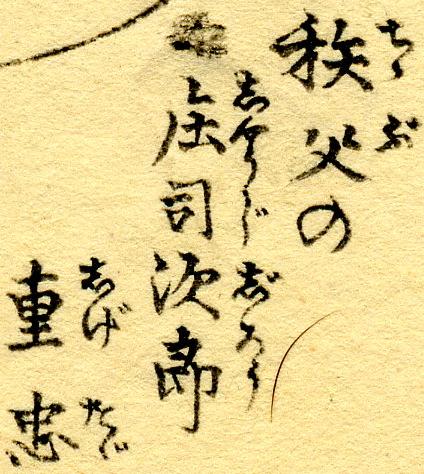 秩父の
ちゝぶ
庄司次郎
しやうじじろう
重忠
しげたゞ